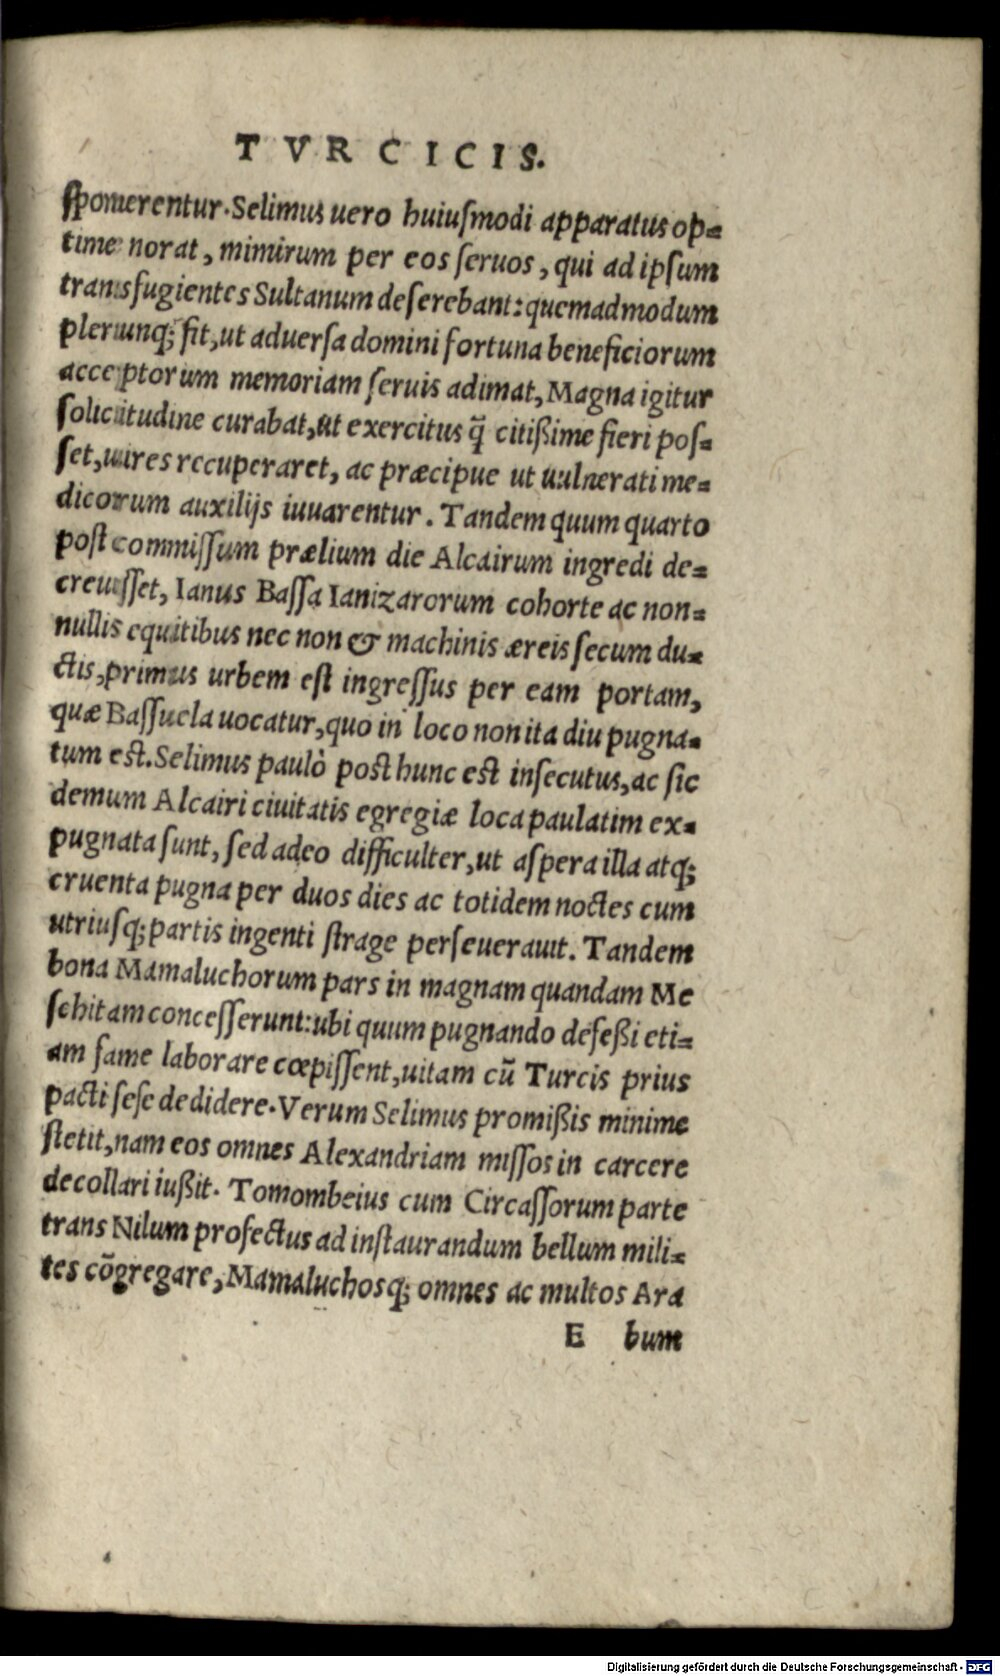 TVRCICIS.
sponerentur. Selimus uero huiusmodi apparatus op=
time norat, mimirum per eos seruos, qui ad ipsum
transfugientes Sultanum deserebant: quemadmodum
plerunq; fit, ut aduersa domini fortuna beneficiorum
acceptorum memoriam seruis adimat, Magna igitur
solicitudine curabat, ut exercitus q̃ citißime fieri pos=
set, uires recuperaret, ac præcipue ut uulnerati me=
dicorum auxilijs iuuarentur. Tandem quum quarto
post commissum prælium die Alcairum ingredi de=
creuisset, Ianus Bassa Ianizarorum cohorte ac non=
nullis equitibus nec non & machinis æreis secum du=
ctis, primus urbem est ingressus per eam portam,
quæ Bassuela uocatur, quo in loco non ita diu pugna=
tum est. Selimus paulò post hunc est insecutus, ac sic
demum Alcairi ciuitatis egregiæ loca paulatim ex=
pugnata sunt, sed adeo difficulter, ut aspera illa atq;
cruenta pugna per duos dies ac totidem noctes cum
utriusq; partis ingenti strage perseuerauit. Tandem
bona Mamaluchorum pars in magnam quandam Me
schitam concesserunt: ubi quum pugnando defeßi eti=
am fame laborare cœpissent, uitam cũ Turcis prius
pacti sese dedidere. Verum Selimus promißis minime
stetit, nam eos omnes Alexandriam missos in carcere
decollari iußit. Tomombeius cum Circassorum parte
trans Nilum profectus ad instaurandum bellum mili=
tes cõgregare, Mamaluchosq; omnes ac multos Ara
E bum
Digitalisierung gefördert durch die Deutsche Forschungsgemeinschaft - DFG